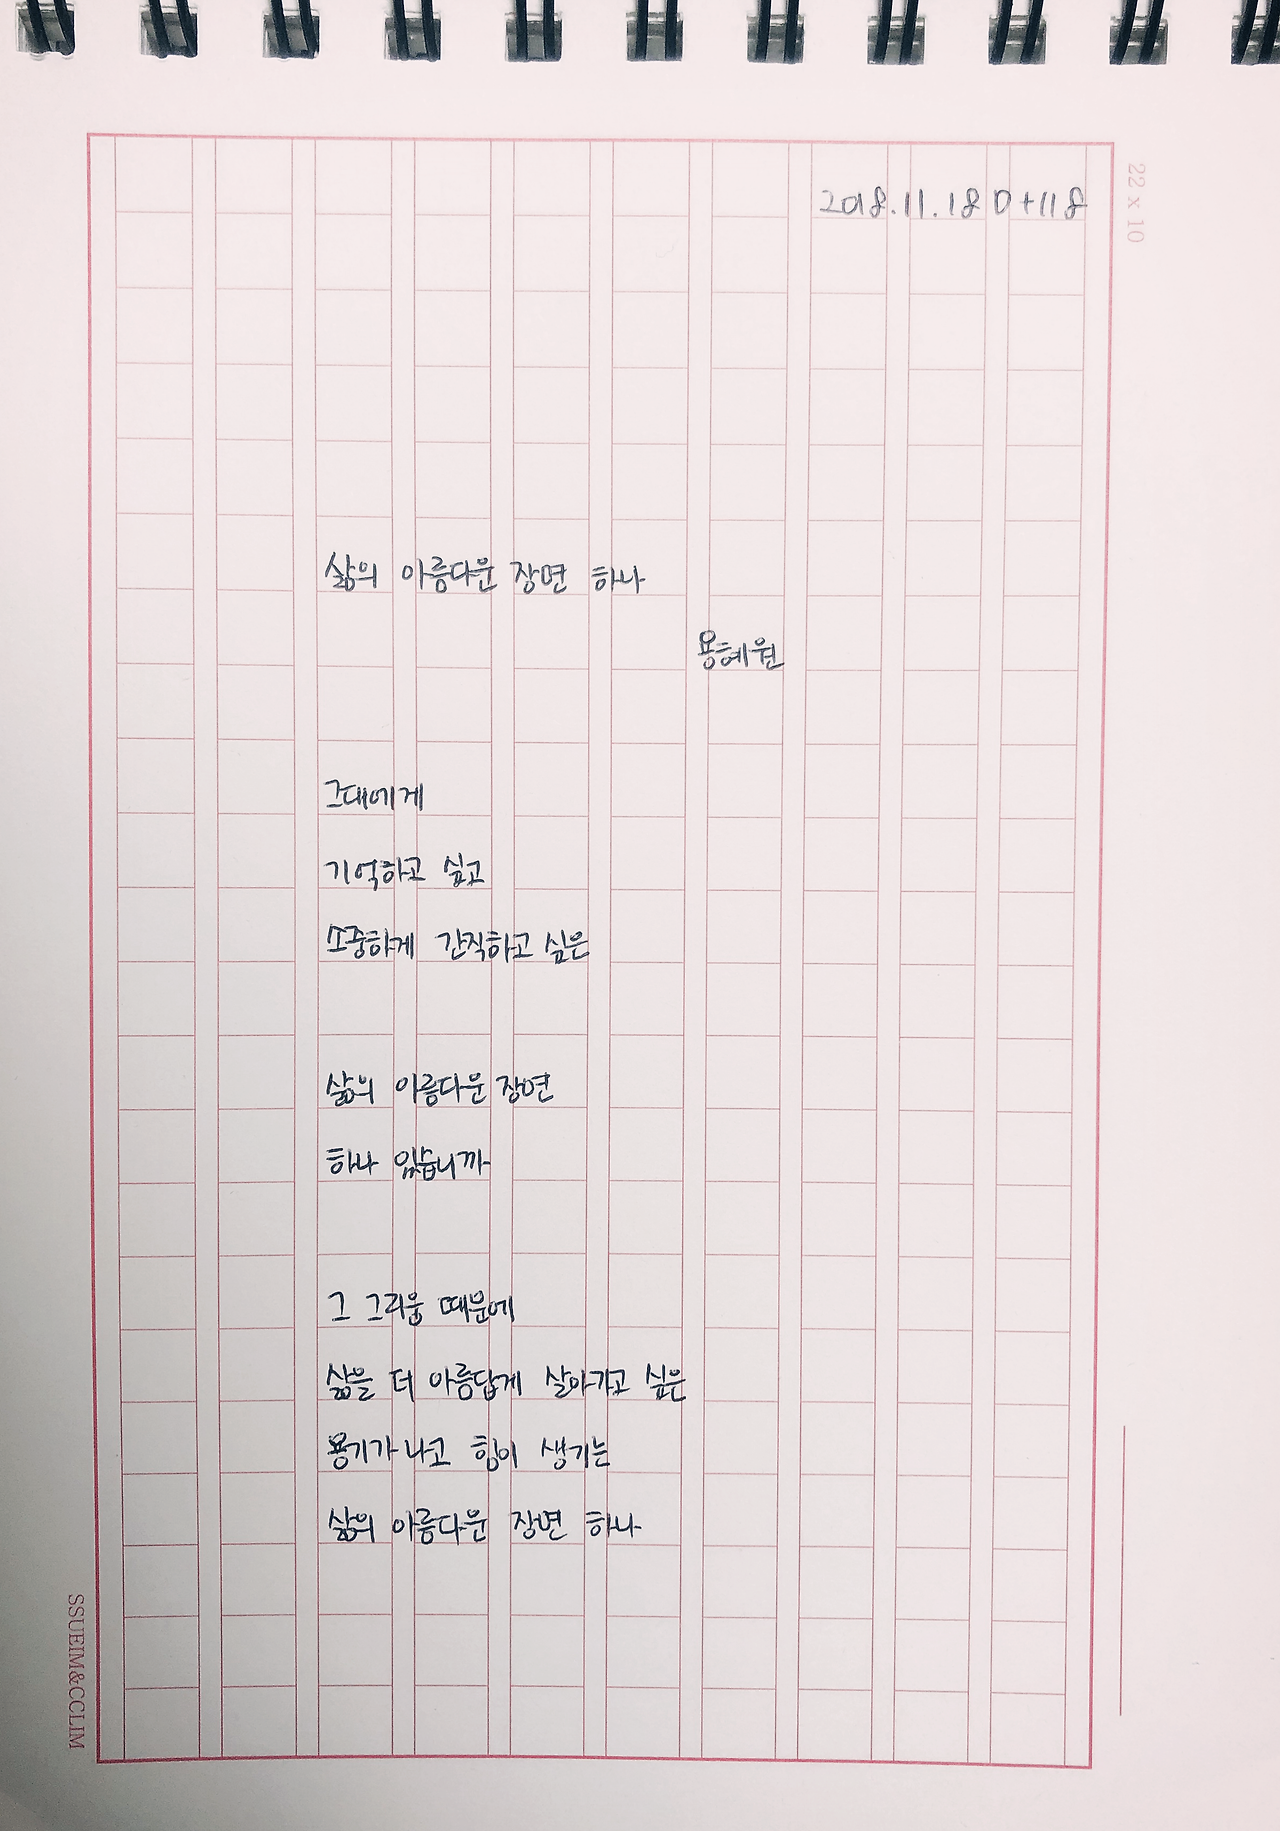 2018.11.18 D+118
22 x 10
삶의 아름다운 장면 하나
용혜원
그대에게
기억하고 싶고
소중하게 간직하고 싶은
삶의 아름다운 장면
하나 있습니까
그 그리움 때문에
삶을 더 아름답게 살아가고 싶은
용기가 나고 힘이 생기는
삶의 아름다운 장면 하나
SSUEIM&CCLIM